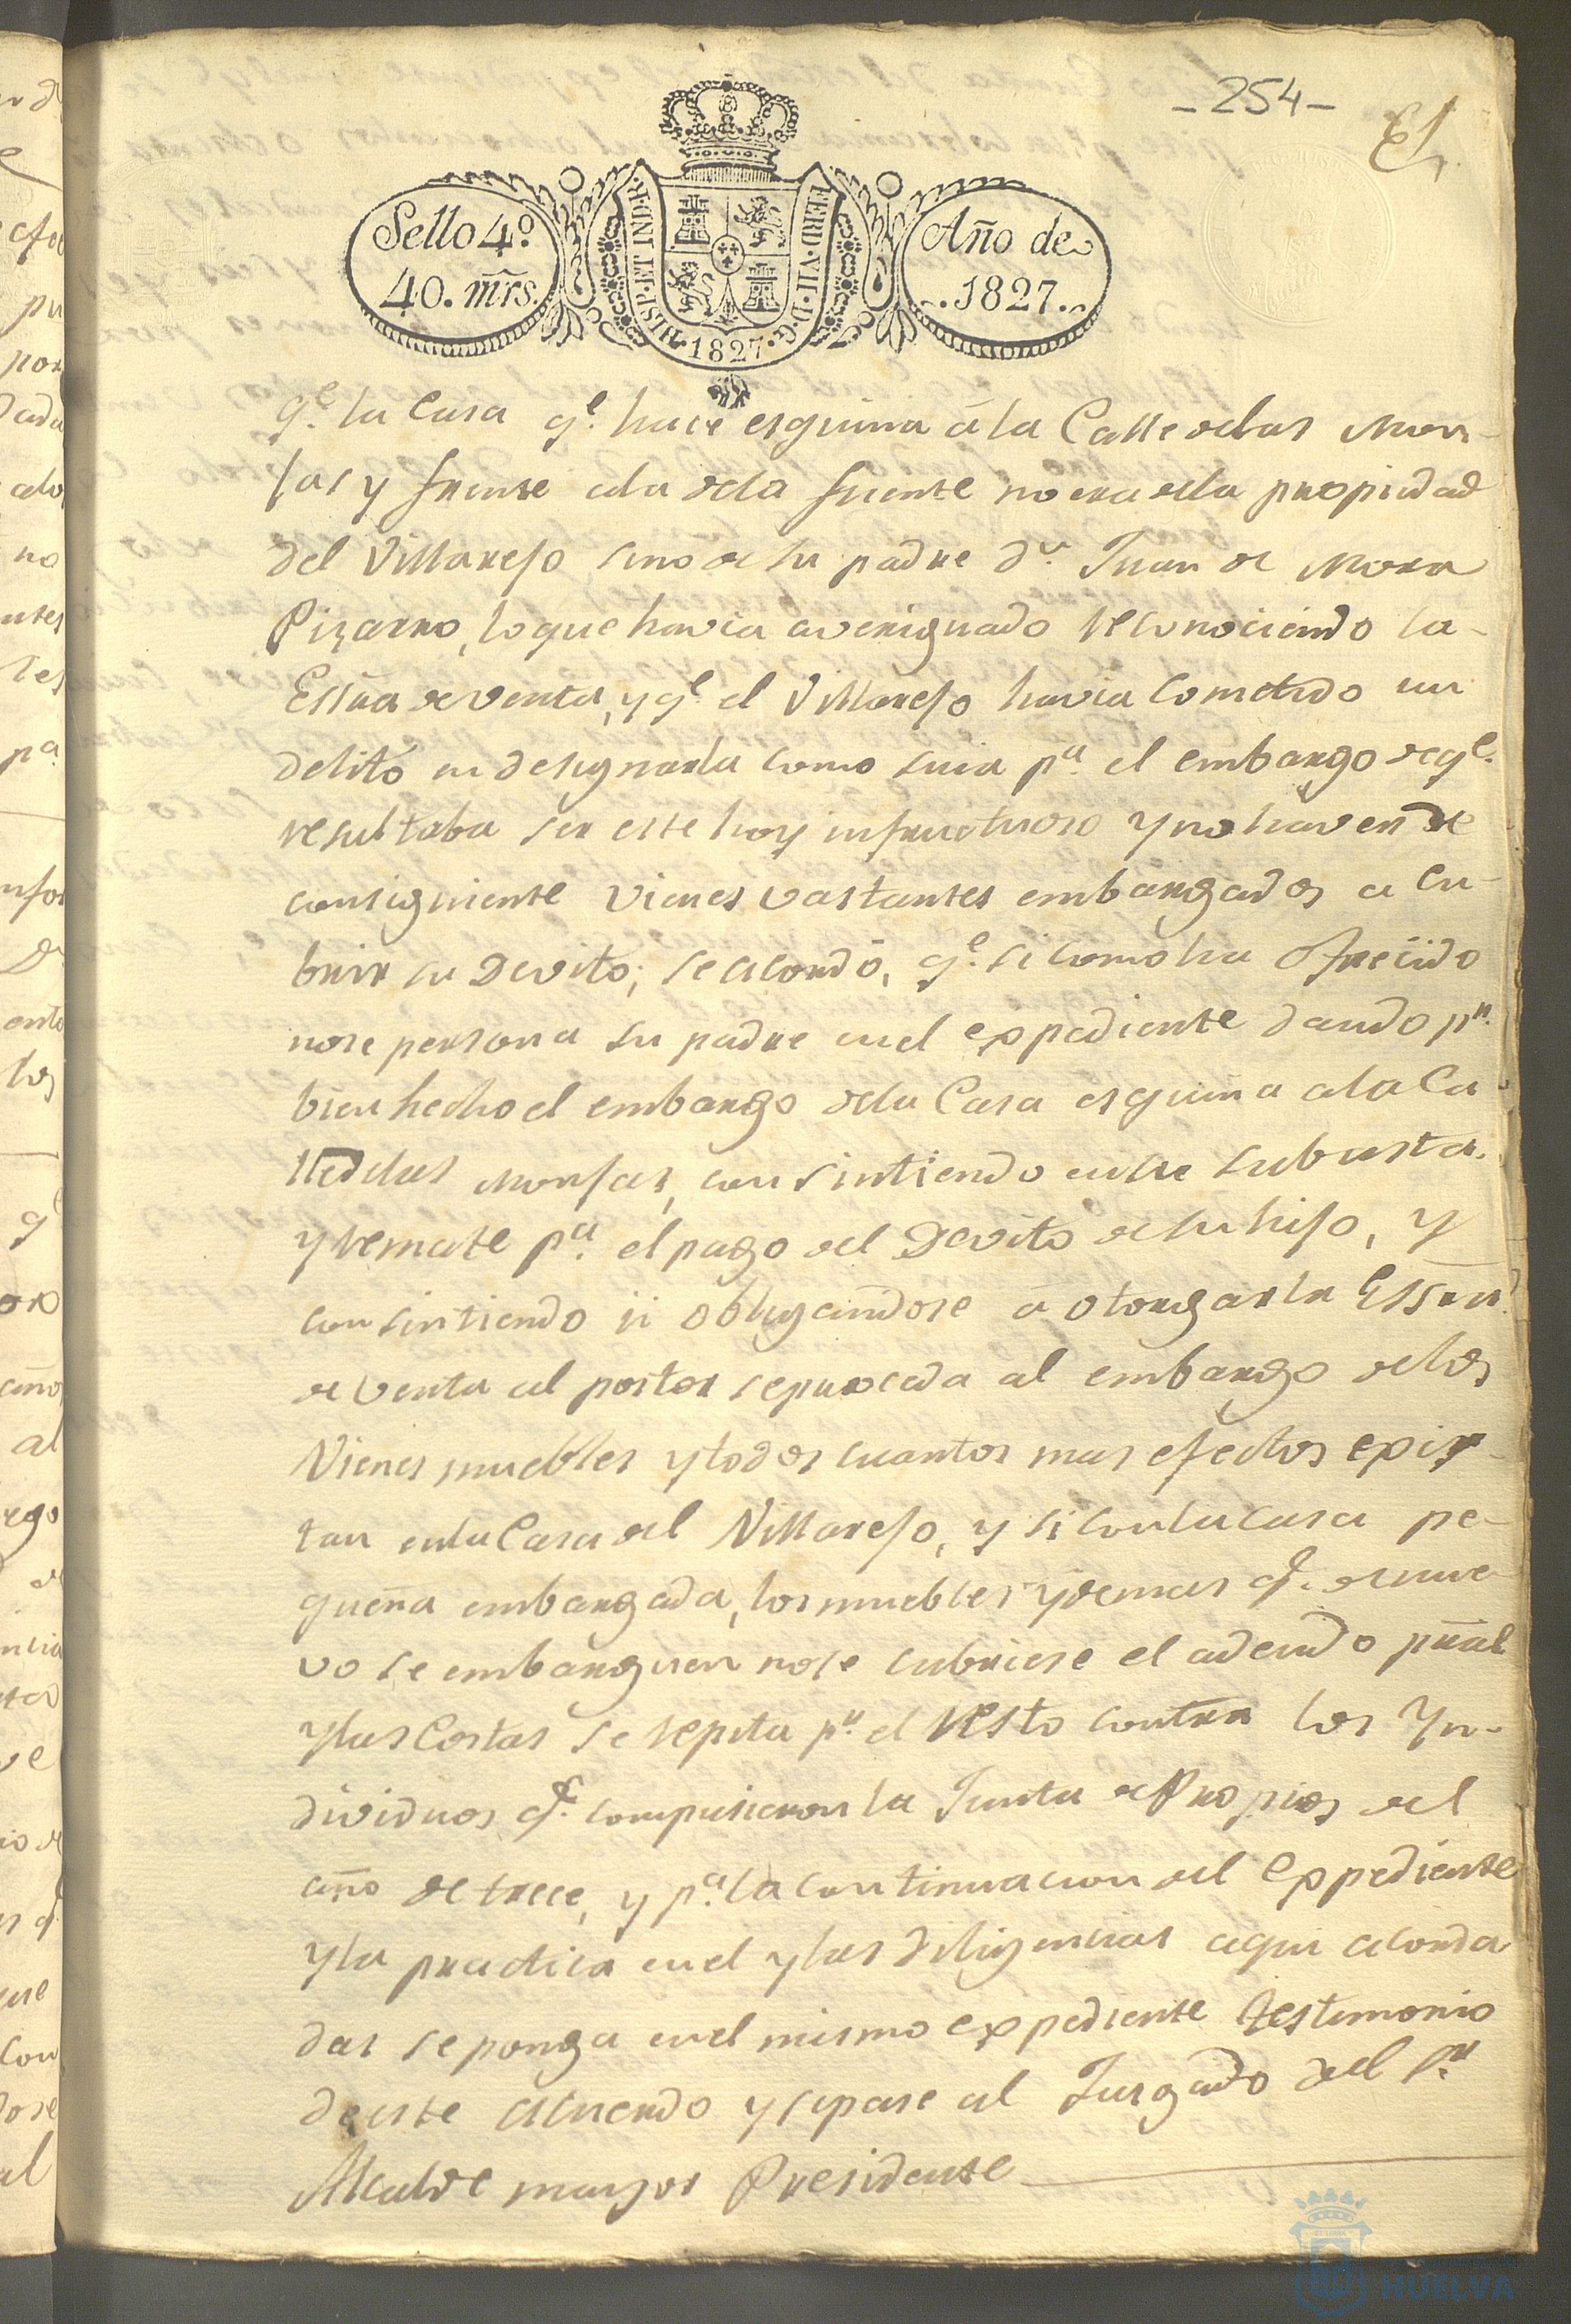 - 254 -
Sello 4.º
40. mrs.
HISP. ET IND. R.
FERD. VII. D. G.
1827
Año de
1827.
q.e la Casa q.e hace esquina á la Calle delas Mon-
jas y frente ala dela fuente no era dela propiedad
del Villarejo sino de su padre d.n Juan de Mora
Pizarro, lo que havia averiguado reconociendo la
Essra de venta, y q.e el Villarejo havia cometido un
delito en designarla como suia p.a el embargo de q.e
resultaba ser este hoy infructuoso y no haver de
consiguiente vienes vastantes embargados a cu-
brir su Devito; se acordó, q.e si como ha ofrecido
nose persona su padre en el expediente dando p.r
bien hecho el embargo dela Casa esquina ala Ca
lle delas Monjas, consintiendo en su subasta
y remate p.a el pago del Devito de su hijo, y
consintiendo ii obligandose á otorgar la Essra
de venta al postor se proceda al embargo delos
Vienes muebles y todos cuantos mas efectos exis-
tan enla Casa del Villarejo, y si con la casa pe-
queña embargada, los muebles y demas q.e de nue-
vo se embarguen nose cubriese el adeudo pral
y las Costas se repita p.r el resto contra los Yn-
dividuos q.e compusieron la Junta de Propios del
año de trece, y p.a la continuacion del Expediente
y la practica en el y las diligencias aqui acorda
das se ponga en el mismo expediente testimonio
de este acuerdo y se pase al Jurgado del S.r
Alcalde mayor Presidente
HUELVA